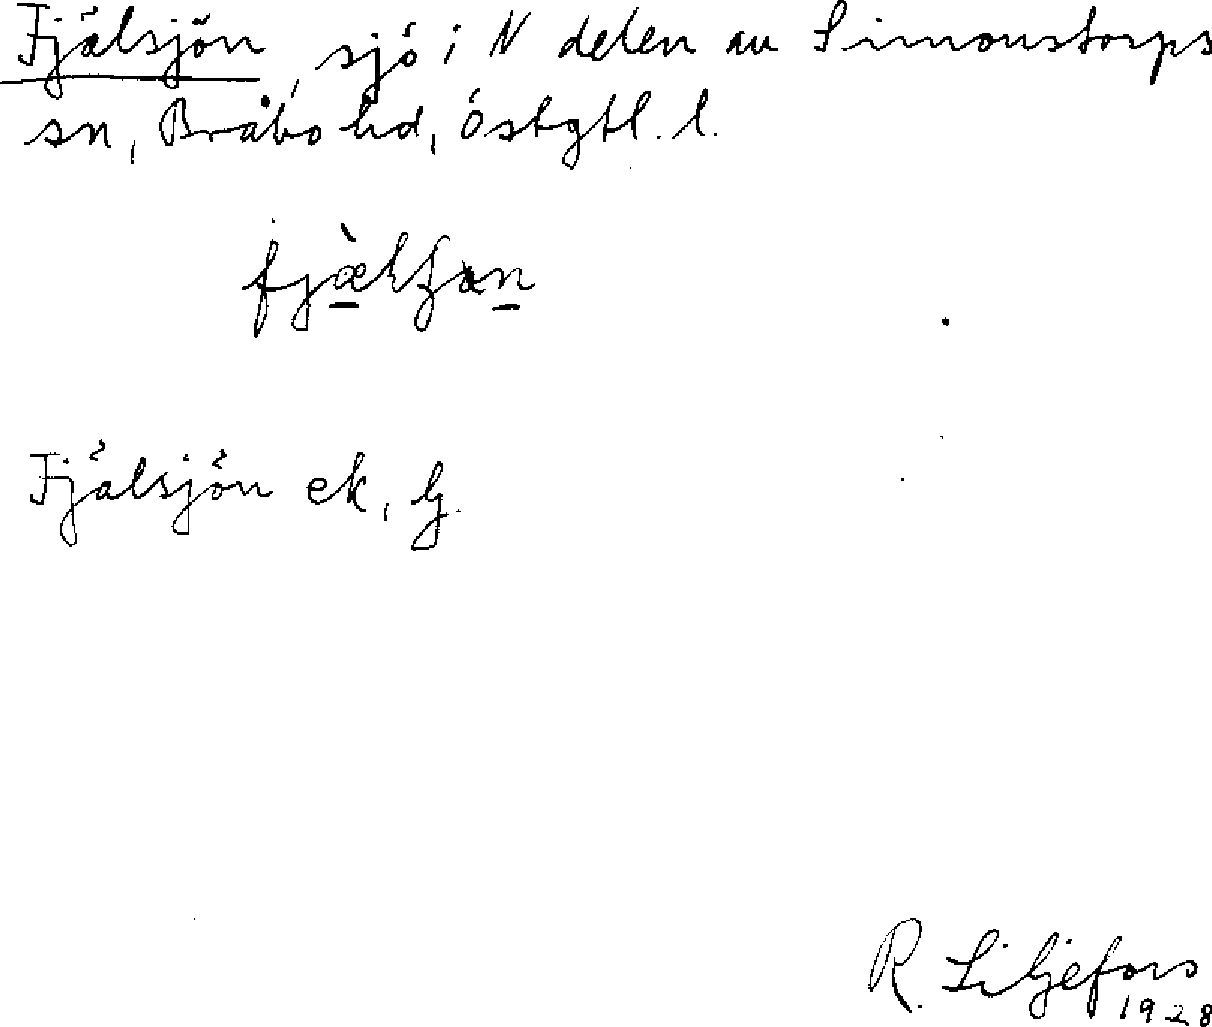 Fjälsjön, sjö i N delen av Simonstorps
sn, Bråbo hd, Östgtl. l.
Fjälsjön ek, lj.
R. Liljefors
1928